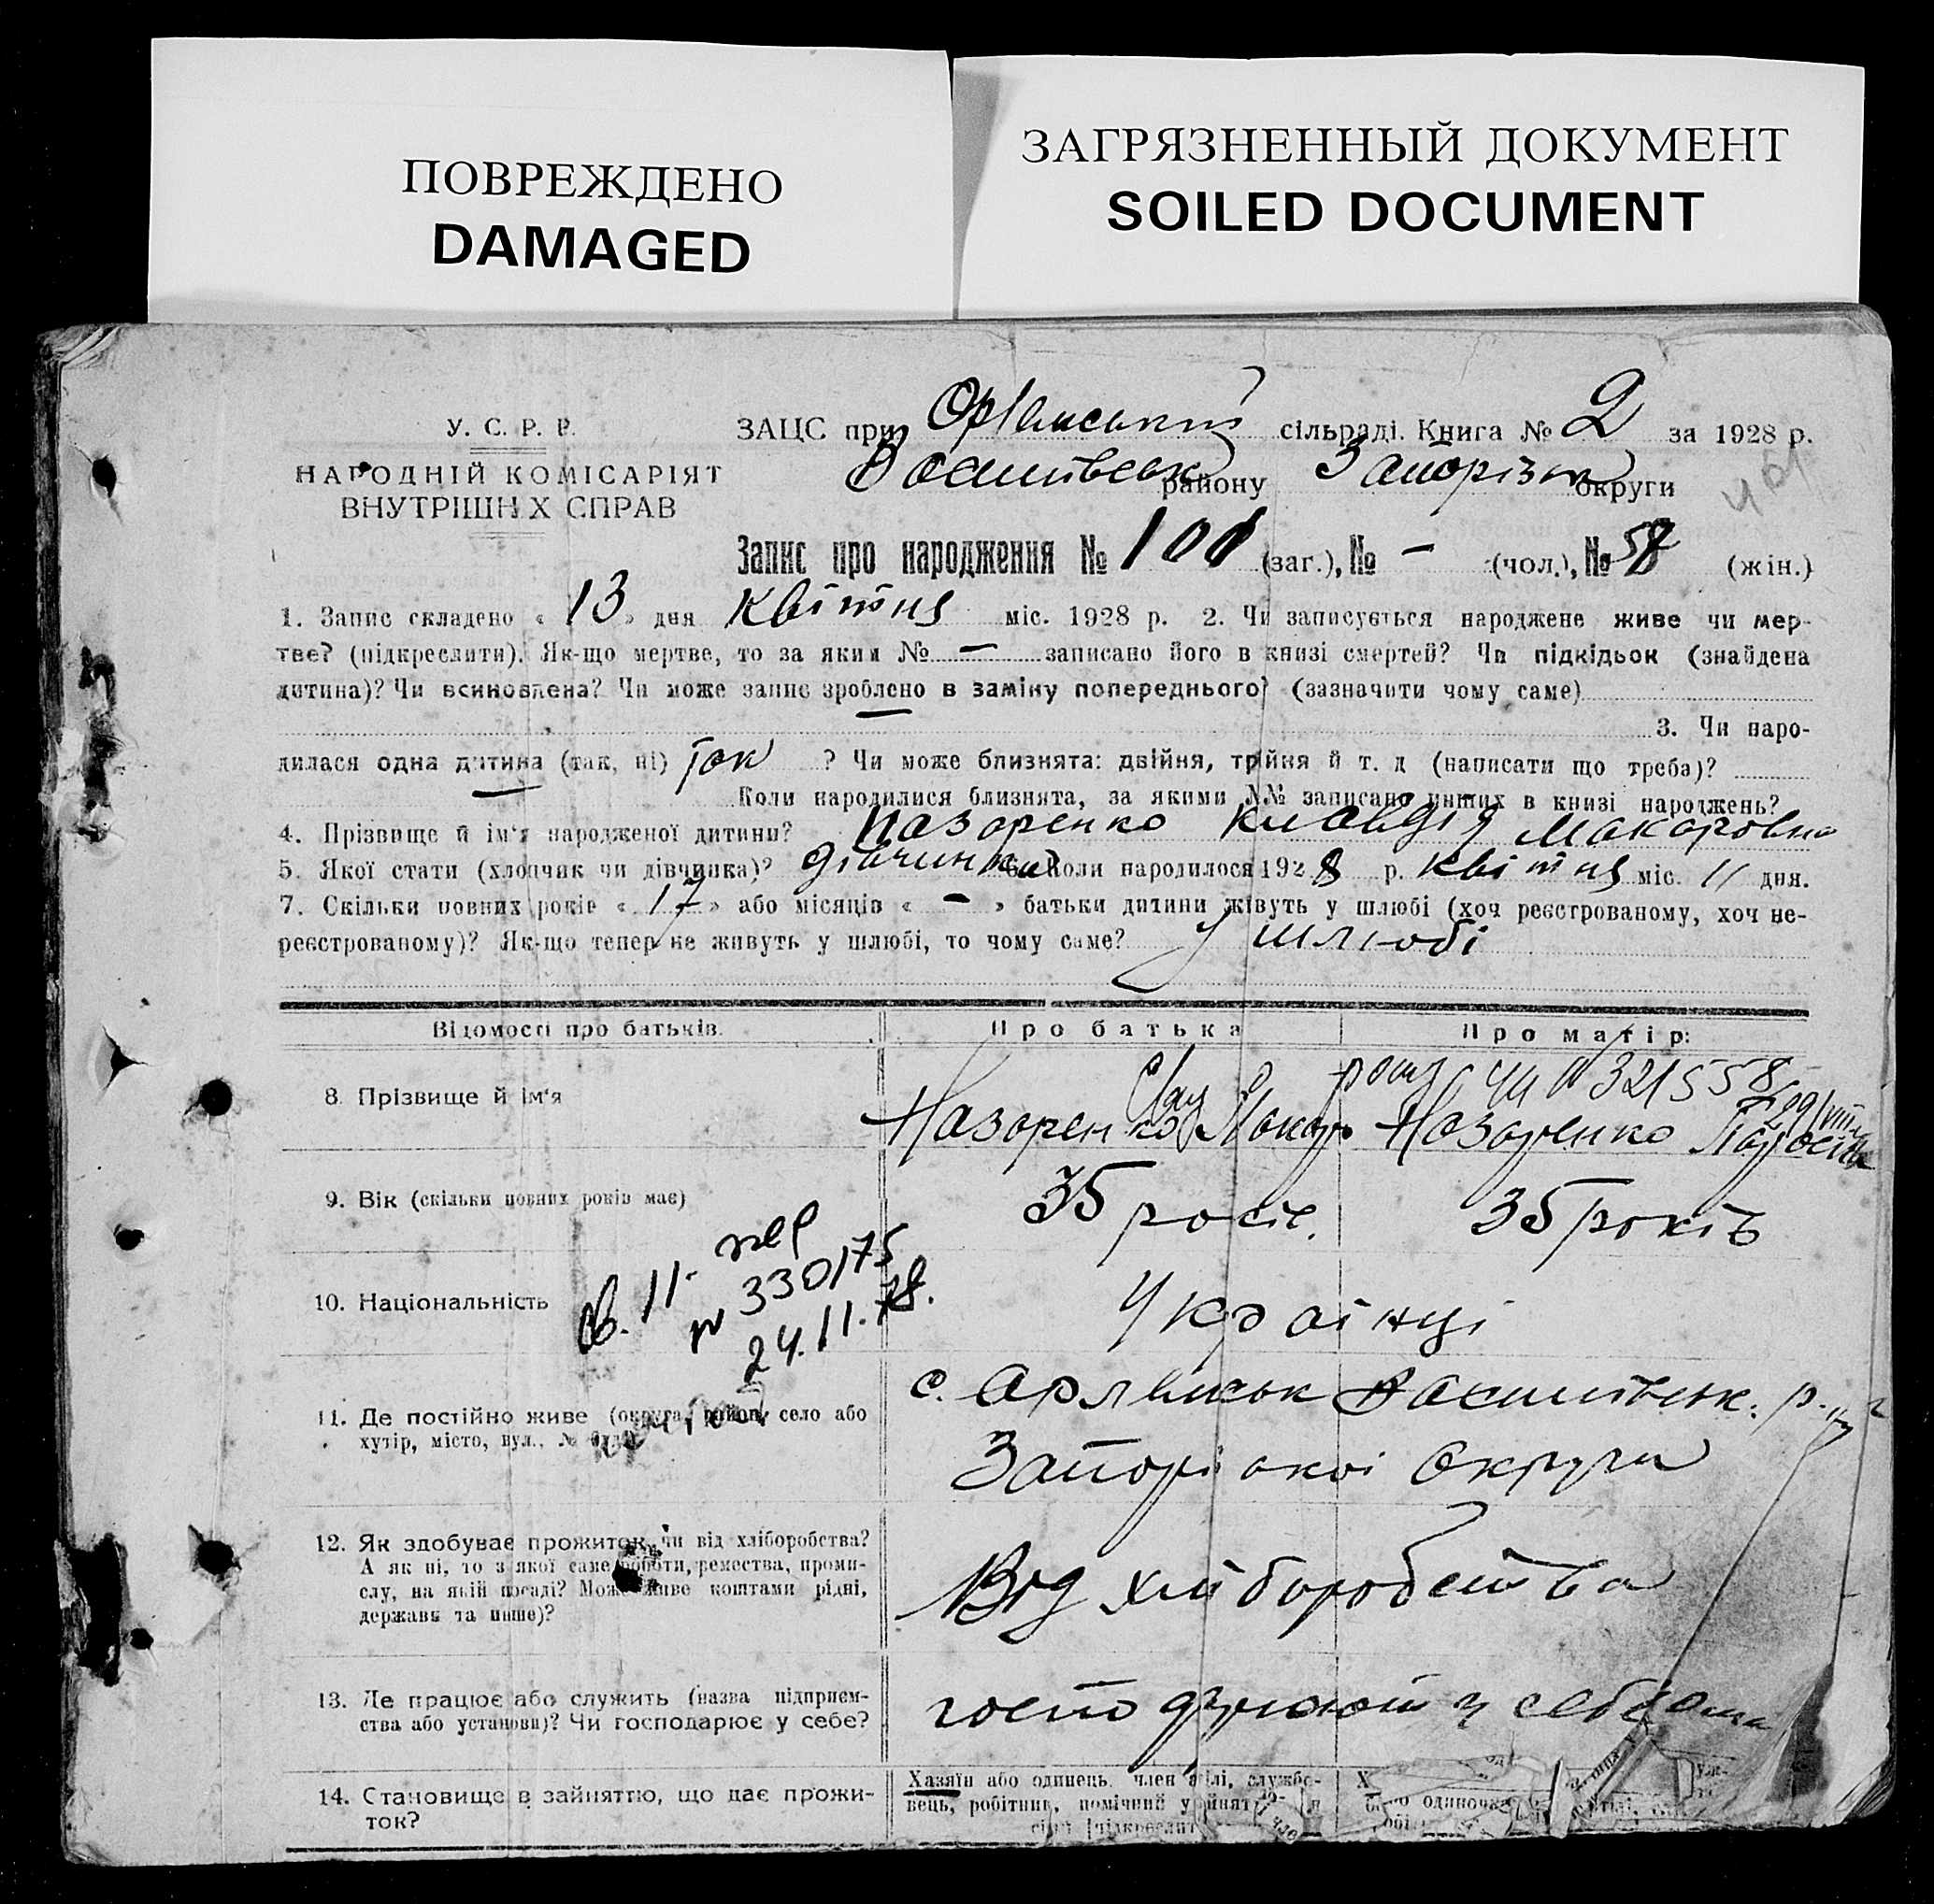 ПОВРЕЖДЕНО
DAMAGED
ЗАГРЯЗНЕННЫЙ ДОКУМЕНТ
SOILED DOCUMENT
У. С. Р. Р.
НАРОДНІЙ КОМІСАРІЯТ
ВНУТРІШНІХ СПРАВ
ЗАЦС при сільраді. Книга № 2 за 1928 р.
району округи
Запис про народження № 101 (заг.), № — (чол.), № 58 (жін.)
1. Запис складено « 13 » дня Квітня міс. 1928 р. 2. Чи записується народжене живе чи мер-
тве? (підкреслити). Як-що мертве, то за яким № — записано його в книзі смертей? Чи підкідьок (знайдена
дитина)? Чи всиновлена? Чи може запис зроблено в заміну попереднього? (зазначити чому саме)
— 3. Чи наро-
дилася одна дитина (так, ні) так ? Чи може близнята: двійня, трійня й т. д (написати що треба)?
— Коли народилися близнята, за якими №№ записано инших в книзі народжень?
4. Прізвище й ім'я народженої дитини? Назаренко Клавдія Макаровна
5. Якої стати (хлопчик чи дівчинка)? дівчинка 6. Коли народилося 1928 р. Квітня міс. 11 дня.
7. Скільки повних років « 17 » або місяців « — » батьки дитини живуть у шлюбі (хоч реєстрованому, хоч не-
реєстрованому)? Як-що тепер не живуть у шлюбі, то чому саме? У шлюбі
Відомості про батьків. Про батька Про матір:
8. Прізвище й ім'я Назаренко Макар Назаренко
9. Вік (скільки повних років має) 35 років. 35 років
10. Національність Українці
№ 330175
24.11.78.
11. Де постійно живе (округа, район, село або
хутір, місто, вул., № буд.)
с. Орлянськ Василівськ. р-ну
Запорізької Округи
12. Як здобуває прожиток, чи від хліборобства?
А як ні, то з якої саме роботи, ремества, проми-
слу, на якій посаді? Може живе коштами рідні,
держави та инше)?
Від хліборобства
13. Де працює або служить (назва підприєм-
ства або установи)? Чи господарює у себе?
господарюють у себе
14. Становище в зайняттю, що дає прожи-
ток?
Хазяїн або одинець, член артілі, службо-
вець, робітник, помічний у